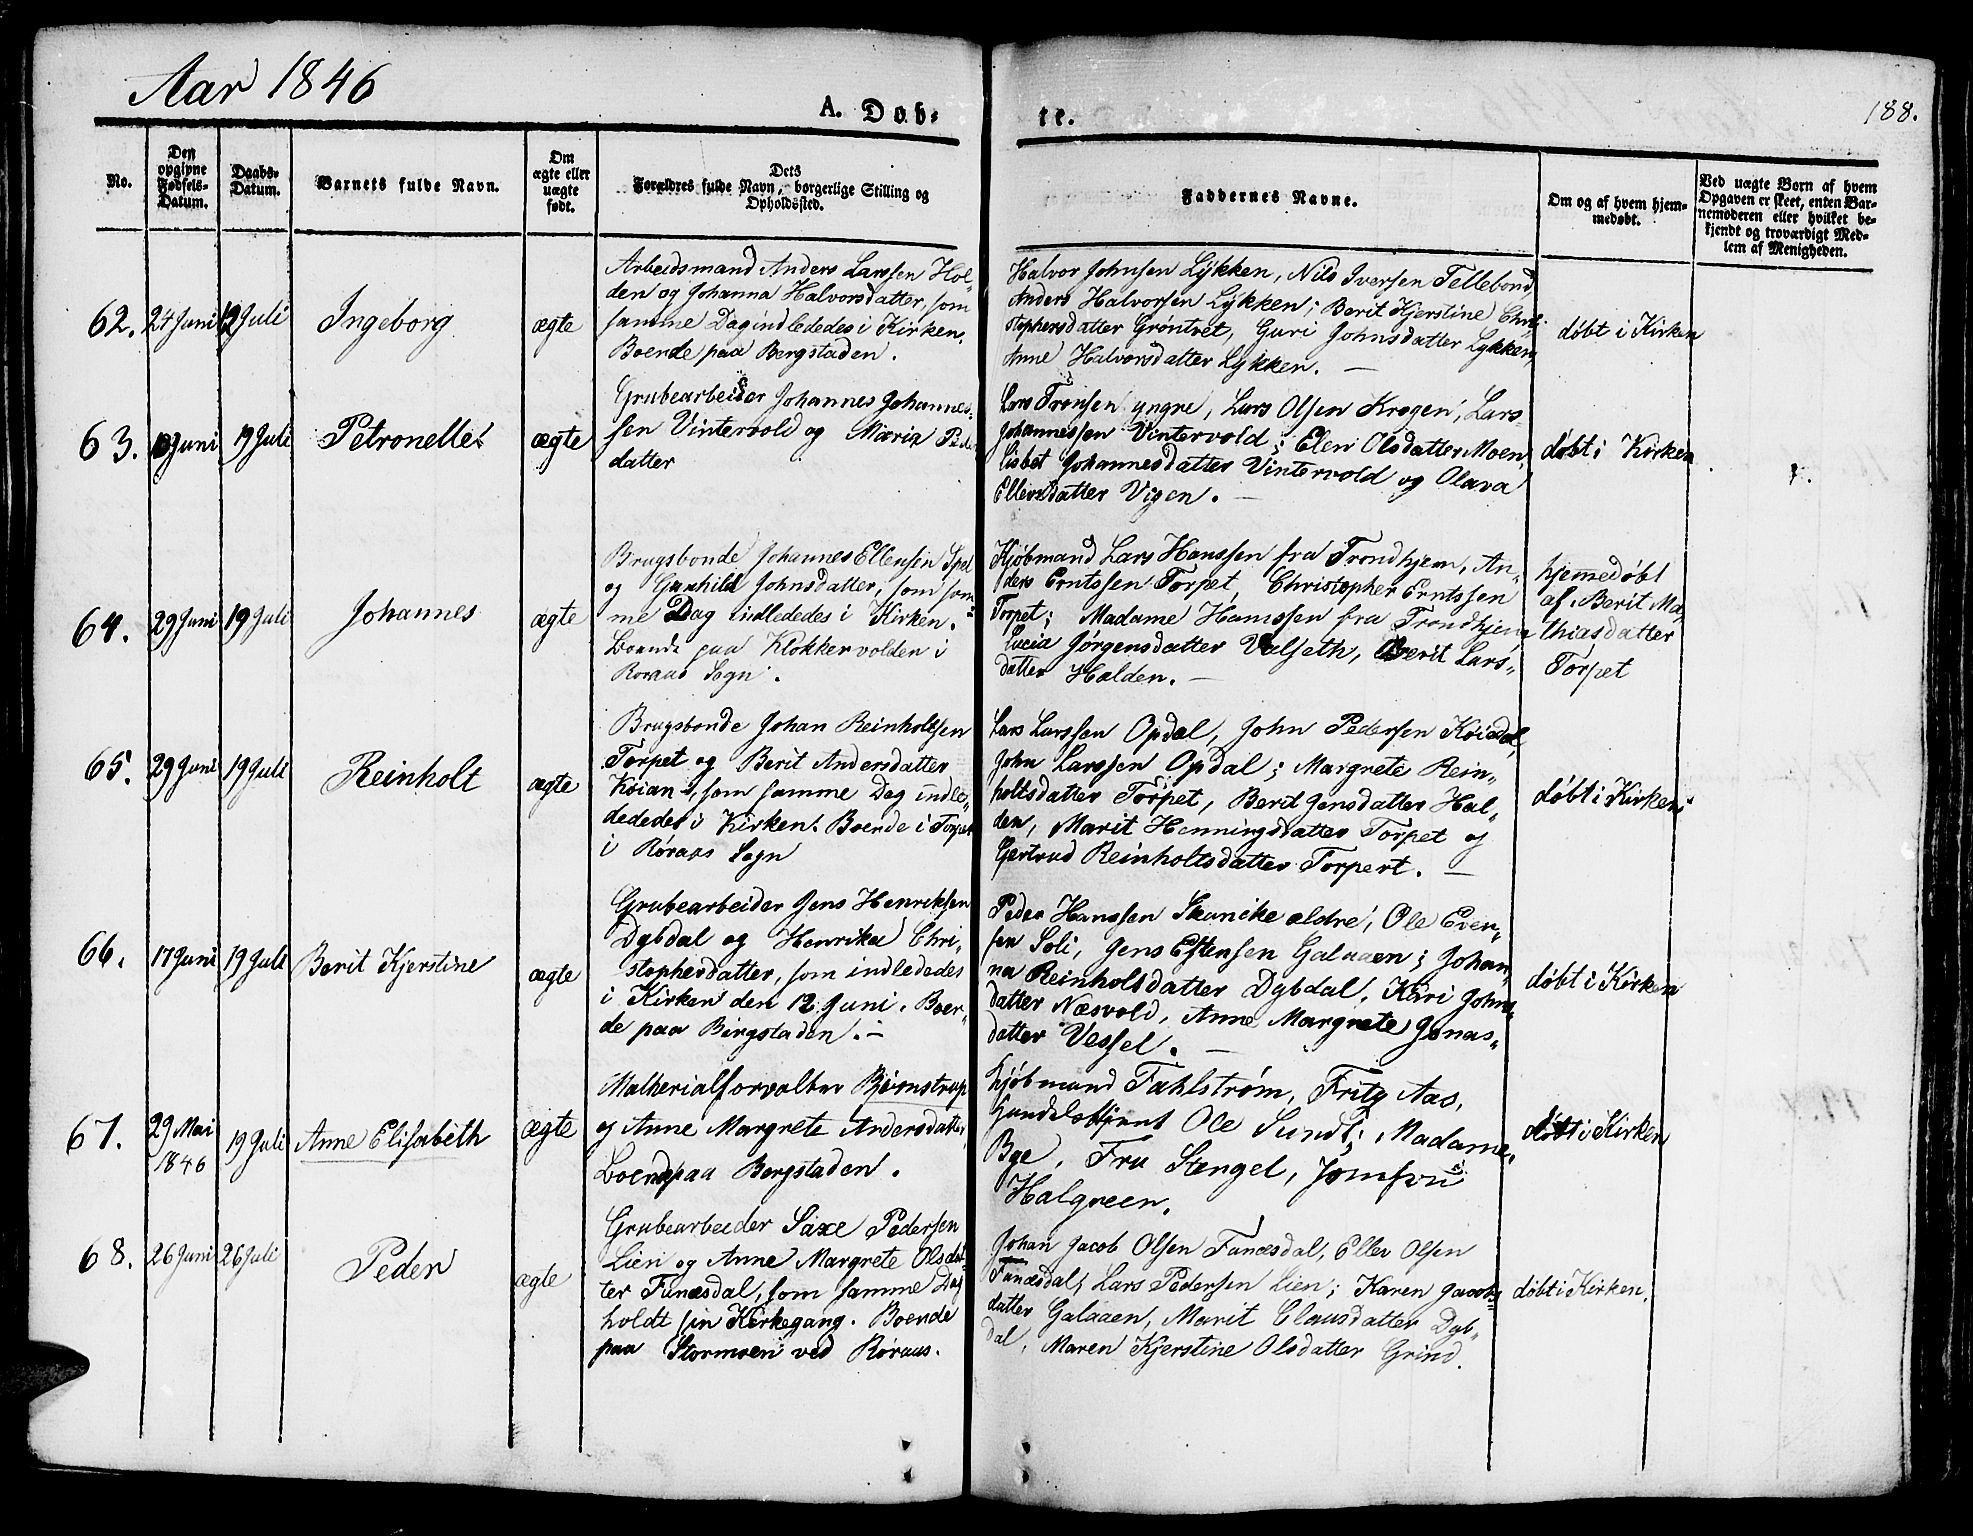 Aar 1846
A. Døb-
te.
188.
No.
Den opgivne Fødsels-Datum.
Daabs-Datum.
Barnets fulde Navn.
Om ægte eller uægte født.
Dets Forældres fulde Navn, borgerlige Stilling og Opholdssted.
Faddernes Navne.
Om og af hvem hjemmedøbt.
Ved uægte Børn af hvem Opgaven er skeet, enten Barnemoderen eller hvilket bekjendt og troværdigt Medlem af Menigheden.
62. 24 Juni 12 Juli Ingeborg ægte
Arbeidsmand Anders Larssen Hol-
den og Johanna Halvorsdatter, som
samme Dag indlededes i Kirken.
Boende paa Bergstaden.
Halvor Johnsen Lykken, Nils Iversen Tellebond,
Anders Halvorsen Lykken; Berit Kjerstine Chri-
stophersdatter Grøntvet, Guri Johnsdatter Lykken,
Anne Halvorsdatter Lykken. —
døbt i Kirken
63. Juni 19 Juli Petronelle ægte
Grubearbeider Johannes Johannes-
sen Vintervold og Maria Pede
datter
Lars Tronsen yngre, Lars Olsen Krogen, Lars
Johannessen Vintervold; Elen Olsdatter Moen,
Lisbet Johannesdatter Vintervold og Olava
Ellevsdatter Vigen. —
døbt i Kirken
64. 29 Juni 19 Juli Johannes ægte
Brugsbonde Johannes Ellensen Spel
og Gunhild Johnsdatter, som sam-
me Dag indlededes i Kirken.
Boende paa Klokkervolden i
Røraas Sogn.
Kjøbmand Lars Hanssen fra Trondhjem, An-
ders Erntssen Torpet, Christopher Erntssen
Torpet; Madame Hanssen fra Trondhjem,
Lucia Jørgensdatter Valseth, Berit Lars-
datter Halden. —
hjemmedøbt
af Berit Ma-
thiasdatter
Torpet
65. 29 Juni 19 Juli Reinholt ægte
Brugsbonde Johan Reinholtsen
Torpet og Berit Andersdatter
Køian, som samme Dag indle-
dedes i Kirken. Boende i Torpet
i Røraas Sogn
Lars Larssen Opdal, John Pedersen Køiedal,
John Larssen Opdal; Margrete Rein-
holtsdatter Torpet, Berit Jensdatter Hal-
den, Marit Henningsdatter Torpet og
Gertrud Reinholtsdatter Torpert. —
døbt i Kirken
66. 17 Juni 19 Juli Berit Kjerstine ægte
Grubearbeider Jens Henriksen
Dybdal og Henrika Chri-
stophersdatter, som indlededes
i Kirken den 12 Juni. Boen-
de paa Bergstaden. —
Peder Hanssen Skancke ældre, Ole Even-
sen Soli, Jens Estensen Galaaen; Johan-
na Reinholsdatter Dybdal, Kari Johns-
datter Næsvold, Anne Margrete Jonas-
datter Vessel. —
døbt i Kirken
67. 29 Mai 1846 19 Juli Anne Elisabeth ægte
Matherialforvalter Bjørnstrup
og Anne Margrete Andersdatter,
Boende paa Bergstaden.
Kjøbmand Fahlstrøm, Fritz Aas,
Handelsbetjent Ole Sundt; Madame
Bye, Fru Stengel, Jomfru
Halgreen.
døbt i Kirken
68. 26 Juni 26 Juli Peder ægte
Grubearbeider Saxe Pedersen
Lien og Anne Margrete Olsdat-
ter Funæsdal, som samme Dag
holdt sin Kirkegang. Boende
paa Stormoen ved Røraas.
Johan Jacob Olsen Funæsdal, Ellev Olsen
Funæsdal, Lars Pedersen Lien; Karen Jacobs-
datter Galaaen, Marit Clausdatter Dyb-
dal, Maren Kjerstine Olsdatter Grind.
døbt i Kirken.